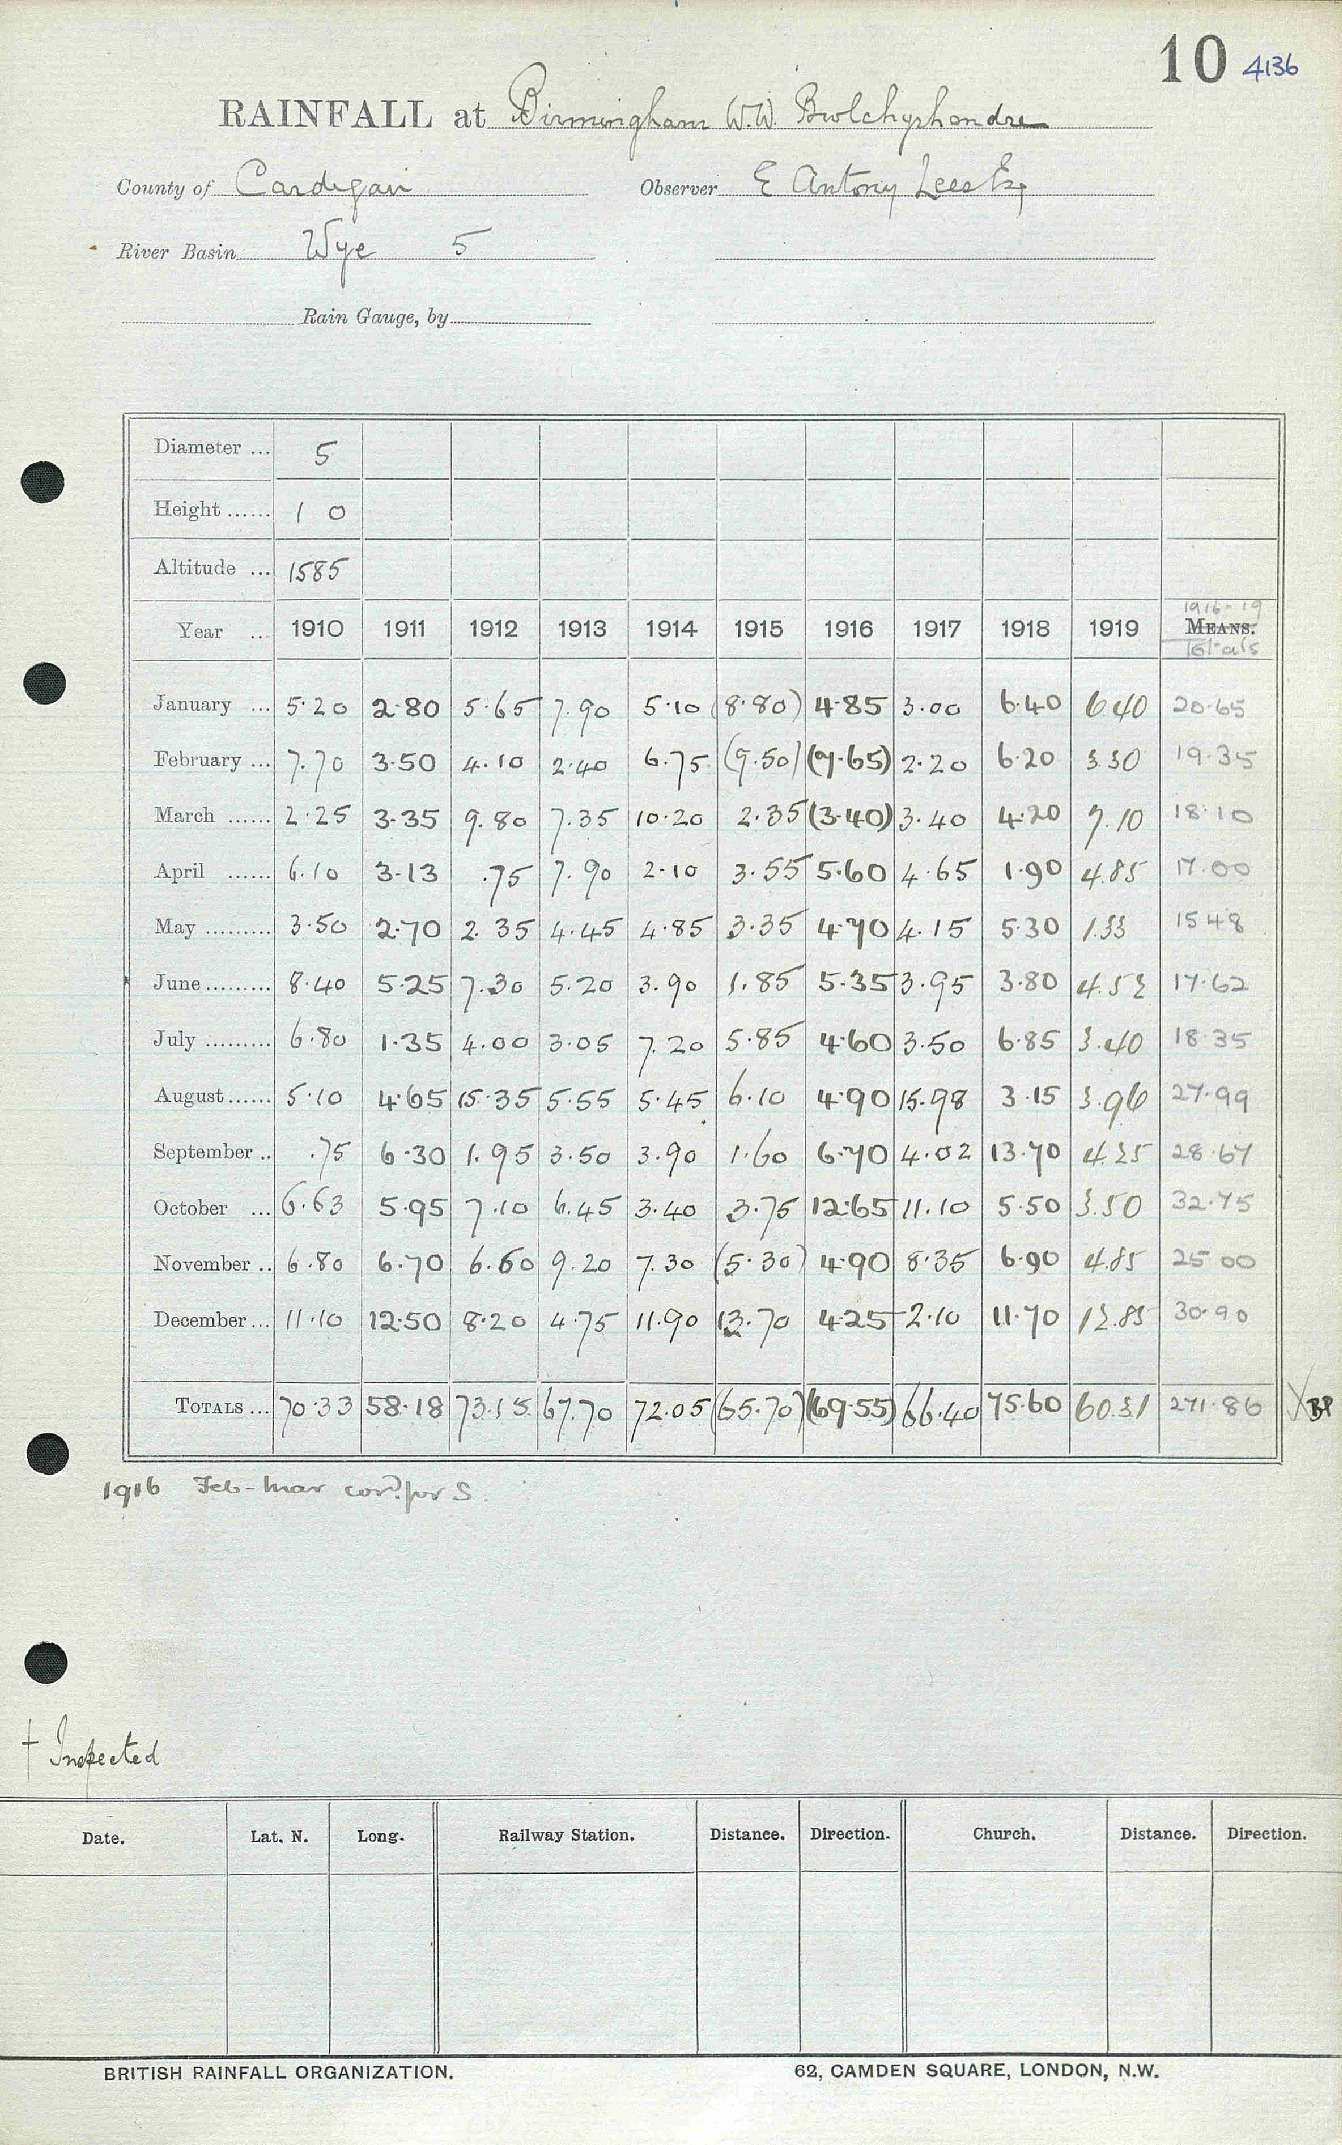 10 4136
RAINFALL at Birmingham W.W. Bwlchyhendre
County of Cardigan Observer E Antony Lees Esq
River Basin Wye 5
Rain Gauge, by
Diameter ... 5
Height ...... 1 0
Altitude ... 1585
1916-19
Year ... 1910 1911 1912 1913 1914 1915 1916 1917 1918 1919 MEANS.
Totals
January ... 5.20 2.80 5.65 7.90 5.10 (8.80) 4.85 3.00 6.40 6.40 20.65
February ... 7.70 3.50 4.10 2.40 6.75 (9.50) (7.65) 2.20 6.20 3.30 19.35
March ...... 2.25 3.35 9.80 7.35 10.20 2.35 (3.40) 3.40 4.20 7.10 18.10
April ...... 6.10 3.13 .75 7.90 2.10 3.55 5.60 4.65 1.90 4.85 17.00
May ......... 3.50 2.70 2.35 4.45 4.85 3.35 4.70 4.15 5.30 1.33 15.48
June ......... 8.40 5.25 7.30 5.20 3.90 1.85 5.35 3.95 3.80 4.52 17.62
July ......... 6.80 1.35 4.00 3.05 7.20 5.85 4.60 3.50 6.85 3.40 18.35
August ...... 5.10 4.65 15.35 5.55 5.45 6.10 4.90 15.98 3.15 3.96 27.99
September .. .75 6.30 1.95 3.50 3.90 1.60 6.70 4.02 13.70 4.25 28.67
October ... 6.63 5.95 7.10 6.45 3.40 3.75 12.65 11.10 5.50 3.50 32.75
November .. 6.80 6.70 6.60 9.20 7.30 (5.30) 4.90 8.35 6.90 4.85 25.00
December ... 11.10 12.50 8.20 4.75 11.90 13.70 4.25 2.10 11.70 12.85 30.90
TOTALS ... 70.33 58.18 73.15 67.70 72.05 (65.70) (69.55) 66.40 75.60 60.31 271.86 BP
1916 Feb-Mar corr. for S.
† Inspected
Date. Lat. N. Long. Railway Station. Distance. Direction. Church. Distance. Direction.
BRITISH RAINFALL ORGANIZATION. 62, CAMDEN SQUARE, LONDON, N.W.